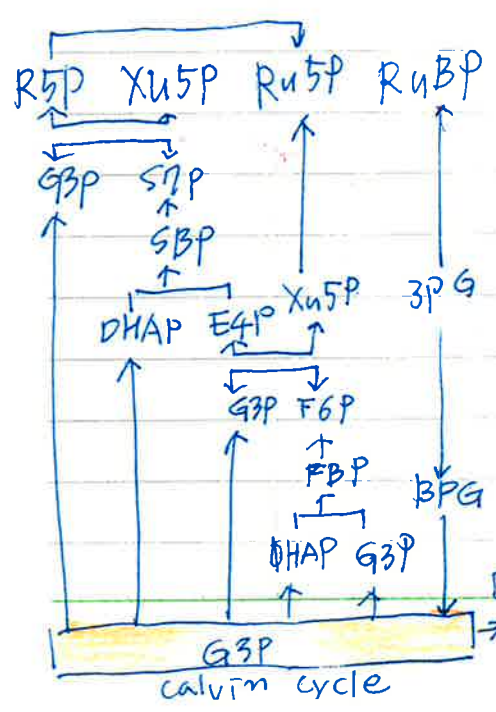 R5P XU5P Ru5P RuBP
G3P S7P
SBP
DHAP E4P Xu5P 3PG
G3P F6P
FBP BPG
DHAP G3P
G3P
calvin cycle